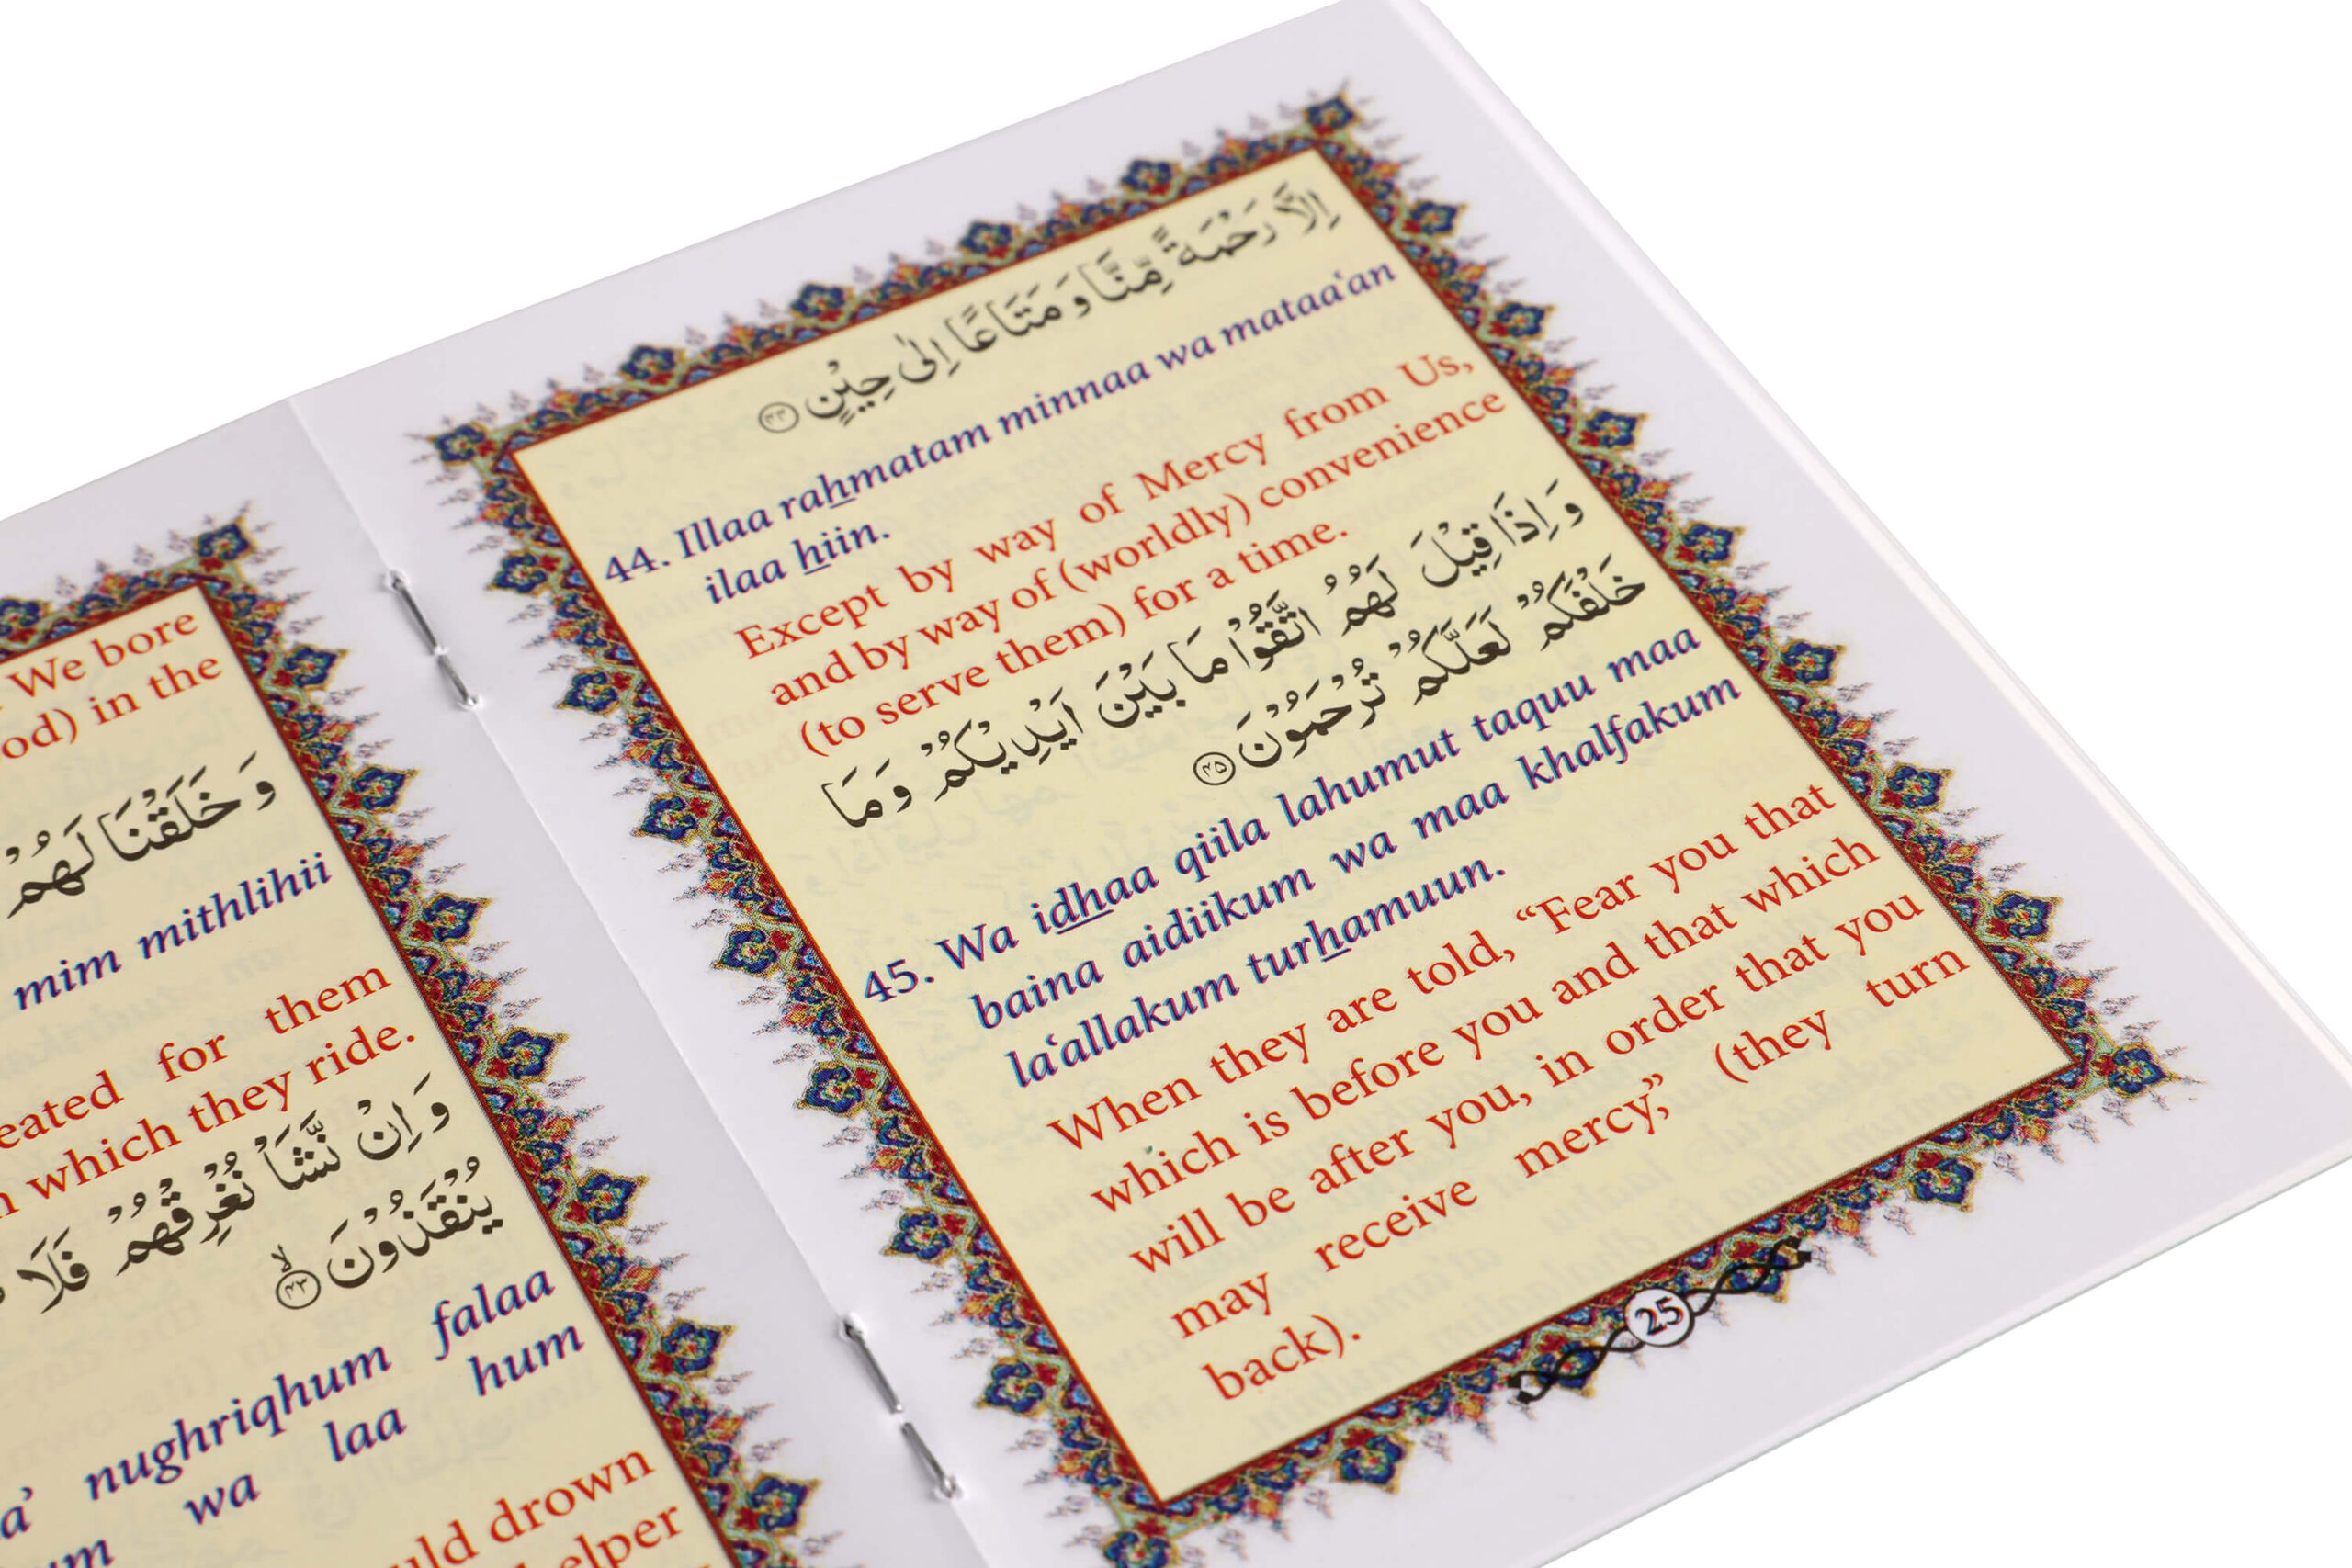 We bore
od) in the
وَ خَلَقْنَا لَهُمْ
mim mithlihii
eated for them
which they ride.
وَ اِنْ نَّشَاْ نُغْرِقْهُمْ فَلَا
يُنْقَذُوْنَ ﴿۴۳﴾ۙ
nughriqhum falaa
wa laa hum
uld drown
elper
اِلَّا رَحْمَةً مِّنَّا وَ مَتَاعًا اِلٰى حِيْنٍ ﴿۴۴﴾
44. Illaa rahmatam minnaa wa mataa‘an
ilaa hiin.
Except by way of Mercy from Us,
and by way of (worldly) convenience
(to serve them) for a time.
وَ اِذَا قِيْلَ لَهُمُ اتَّقُوْا مَا بَيْنَ اَيْدِيْكُمْ وَمَا
خَلْفَكُمْ لَعَلَّكُمْ تُرْحَمُوْنَ ﴿۴۵﴾
45. Wa idhaa qiila lahumut taquu maa
baina aidiikum wa maa khalfakum
la‘allakum turhamuun.
When they are told, “Fear you that
which is before you and that which
will be after you, in order that you
may receive mercy,” (they turn
back).
25